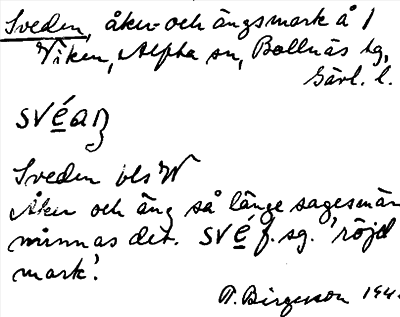 Sveden, åker- och ängsmark å 1
Viken, Alfta sn, Bollnäs tg,
Gävl. l.
svéaŋ
Sveden bls W
Åker och äng så länge sagesmän
minnas det. své f. sg. 'röjd
mark'.
B. Birgersson 194.